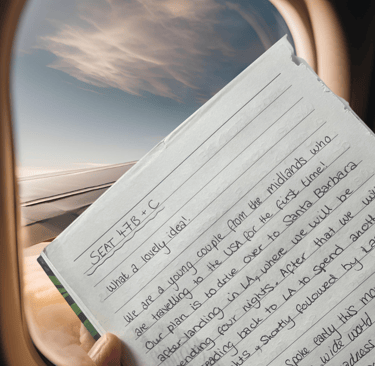 SEAT 47B + C
What a lovely idea!
We are a young couple from the midlands who
are travelling to the USA for the first time!
Our plan is to drive over to Santa Barbara
after landing in LA, where we will be
ending four nights. After that we wi
eading back to LA to spend anoth
hts. Shortly followed by La
spoke early this mo
wide world
adness